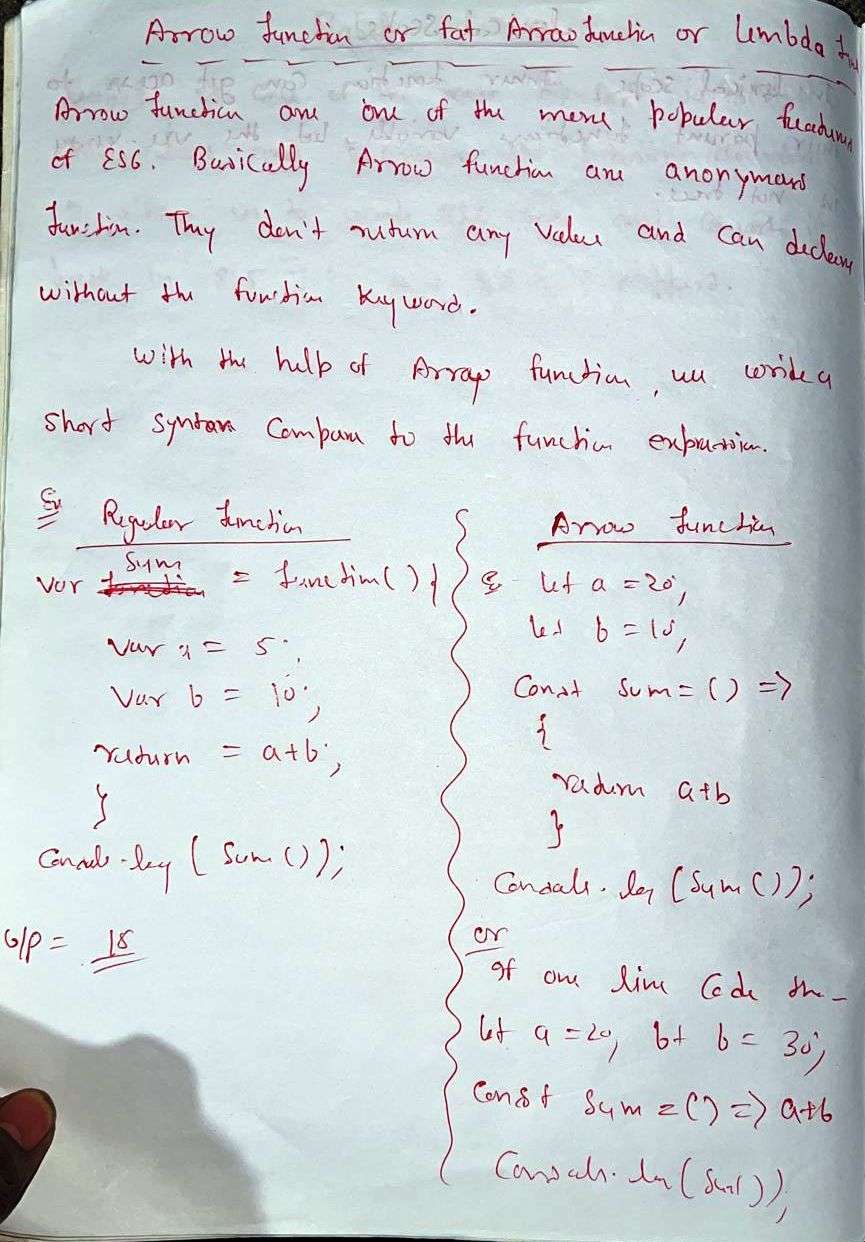 Arrow function or fat Arrow function or Lembda fun
Arrow function are one of the more popular feadures
of ES6. Basically Arrow function are anonymous
function. They don't return any value and can declare
without the function keyword.
With the help of Array function, we write a
short syntax compare to the function expression.
Ex Regular function
var Sum = function() {
var a = 5;
var b = 10;
return = a+b;
}
Console.log ( Sum ());
O/P = 15
Arrow function
Ex let a = 20;
let b = 10;
Const sum = () =>
{
return a+b
}
Console.log (Sum ());
or
If one line Code the_
let a = 20; let b = 30;
Const sum = () => a+b
Console.log (Sum());